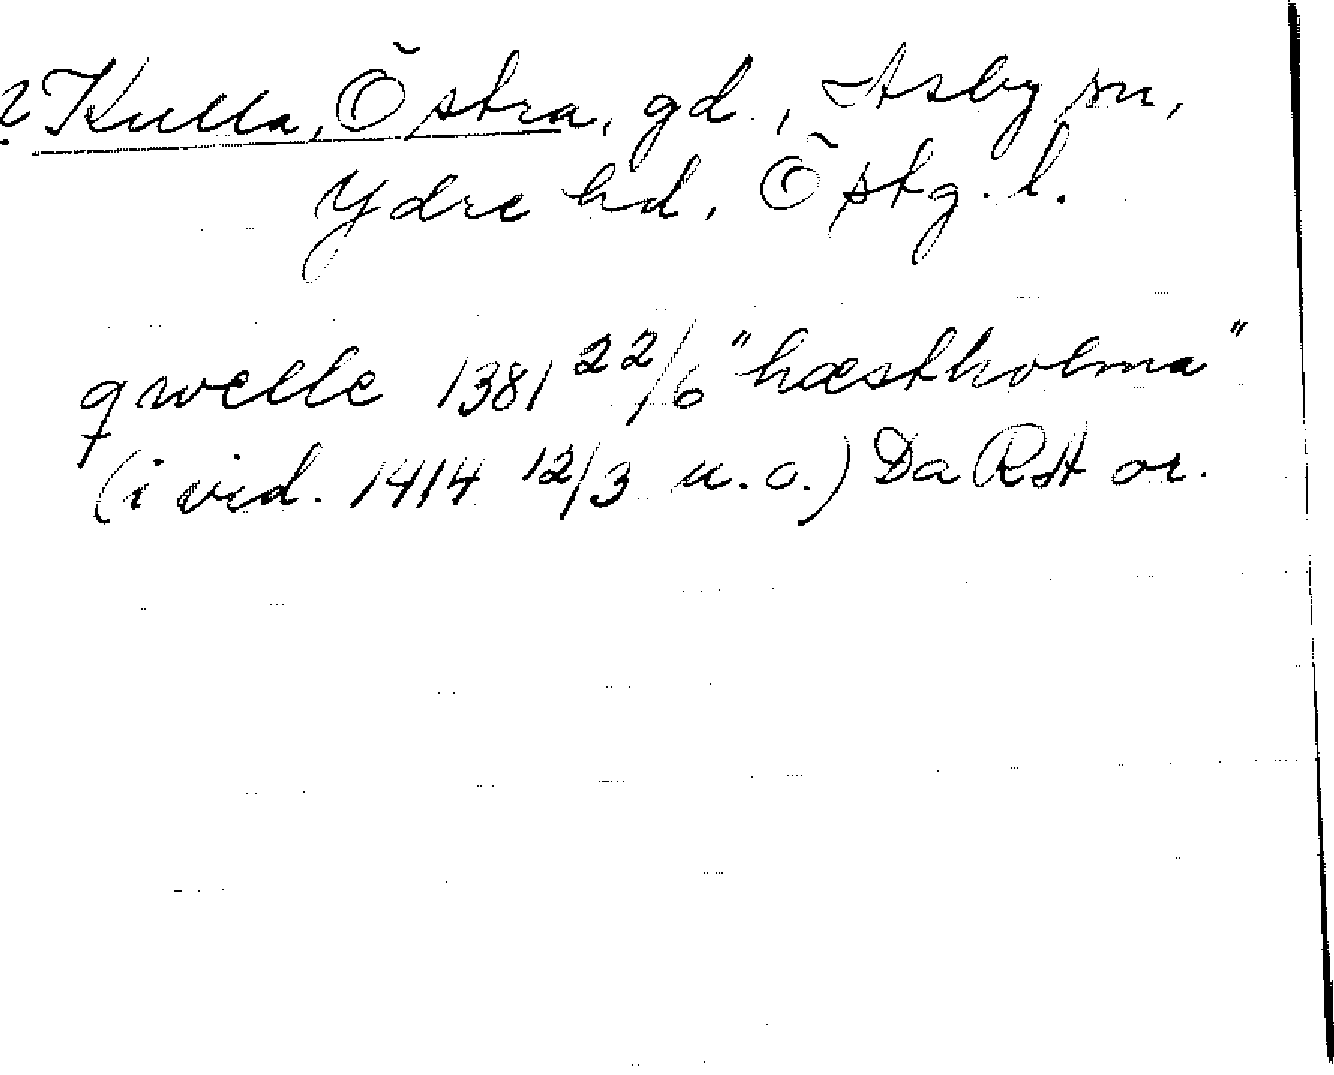 ? Kulla, Östra, gd., Asby sn,
Ydre hd, Östg. l.
qwelle 1381 22/6 "hæstholma"
(i vid. 1414 12/3 u.o.) Da RA or.